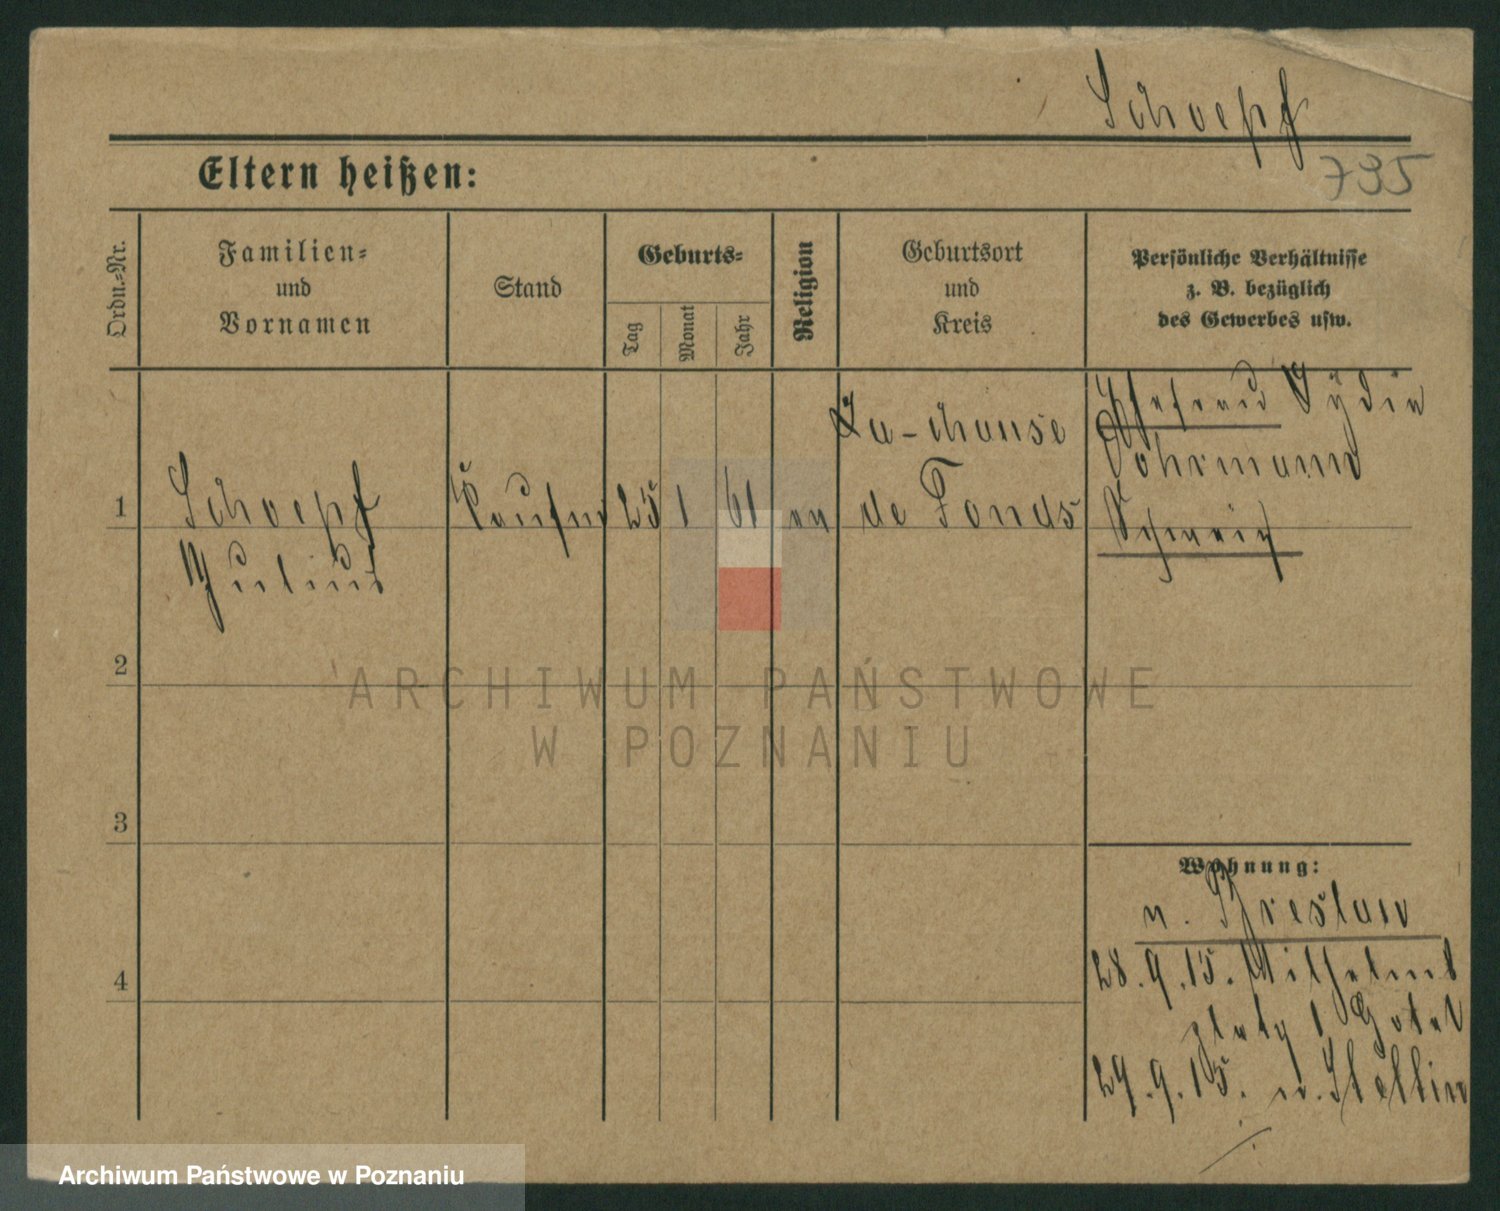 Schoepf
735
Eltern heißen:
Ordn.-Nr.
Familien-
und
Vornamen
Stand
Geburts-
Tag
Monat
Jahr
Religion
Geburtsort
und
Kreis
Persönliche Verhältnisse
z. B. bezüglich
des Gewerbes usw.
1
Schoepf
Julius
Kaufm
25
1
61
ev
La-chause
de Fonds
Ehefrau Lydia
Böhrmann
Schweiz
2
ARCHIWUM PAŃSTWOWE
W POZNANIU
3
4
Wohnung:
v. Breslau
28.9.15. Wilhelms
platz 1 Hotel
29.9.15. n. Stettin
Archiwum Państwowe w Poznaniu